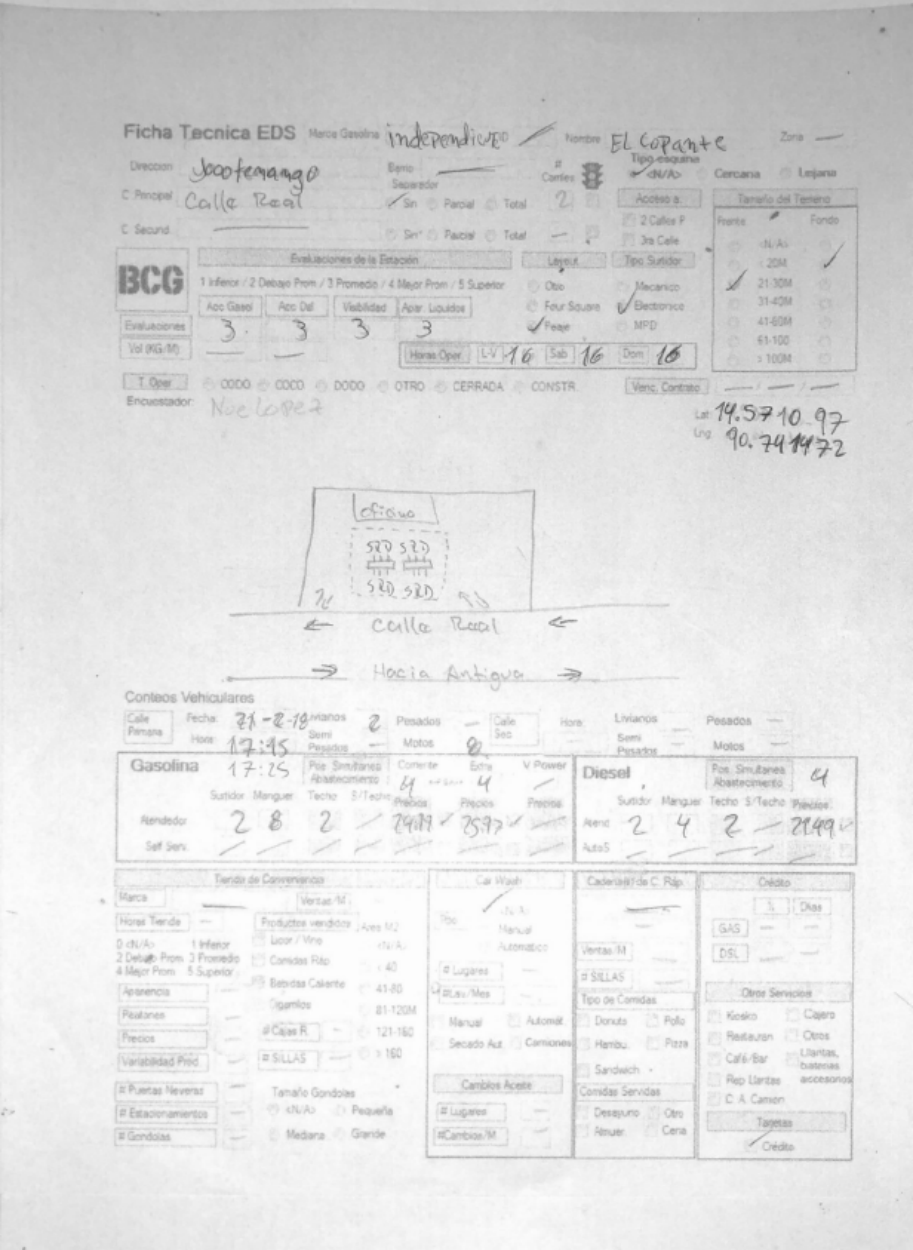 Ficha Tecnica EDS Marca Gasolina independiente Nombre EL Copante Zona —
Direccion Jocotenango Barrio — # Carriles Tipo esquina <N/A> Cercana Lejana
C Principal Calle Real Separador Sin Parcial Total 2 Acceso a: Tamaño del Terreno
2 Calles P Frente Fondo
C Secund. — Sin Parcial Total — 3ra Calle <N/A>
BCG Evaluaciones de la Estación Layout Tipo Surtidor < 20M
1 Inferior / 2 Debajo Prom / 3 Promedio / 4 Mejor Prom / 5 Superior Otro Mecanico 21-30M
Acc Gasol Acc Dsl Visibilidad Apar. Liquidos Four Square Electronico 31-40M
Evaluaciones 3 3 3 3 Peaje MPD 41-60M
61-100
Vol (KG/M) — — Horas Oper. L-V 16 Sab 16 Dom 16 > 100M
T. Oper CODO COCO DODO OTRO CERRADA CONSTR. Venc. Contrato — / — / —
Encuestador: Noe Lopez
Lat 14.571097
Lng 90.741472
oficina
SRD SRD
SRD SRD
← Calle Real ←
→ Hacia Antigua →
Conteos Vehiculares
Calle Primaria Fecha: 21-2-18 Livianos 2 Pesados — Calle Sec Hora Livianos Pesados —
Hora 17:15 Semi Pesados — Motos 8 Semi Pesados Motos —
Gasolina 17:25 Pos. Simultanea Abastecimiento Corriente 4 Extra 4 V Power — Diesel Pos. Simultanea Abastecimiento 4
Surtidor Manguer Techo S/Techo Precios Precios Precios Surtidor Manguer Techo S/Techo Precios
Atendedor 2 8 2 — Atend 2 4 2 — 21.49
Self Serv. — — — — — — — AutoS — — — — —
Tienda de Conveniencia Car Wash Cadena(s) de C. Ráp. Crédito
Marca — Ventas/M <N/A> — % Dias
Horas Tienda — Productos vendidos Area M2 Tipo Manual GAS — —
0 <N/A> 1 Inferior Licor / Vino <N/A> Automatico Ventas/M
2 Debajo Prom 3 Promedio Comidas Ráp < 40 DSL — —
4 Mejor Prom 5 Superior # Lugares — # SILLAS
Apariencia Bebidas Caliente 41-80 # Lav./Mes — Tipo de Comidas Otros Servicios
Rotulones Cigarrillos 81-120M Manual Automát. Donuts Pollo Kiosko Cajero
Precios # Cajas R. — 121-160 Secado Aut Camiones Hambu. Pizza Restauran Otros
Variabilidad Prod. # SILLAS — > 160 Sandwich Café/Bar Llantas, baterias accesorios
# Puertas Neveras — Tamaño Gondolas Cambios Aceite Comidas Servidas Rep Llantas
# Estacionamientos — <N/A> Pequeña # Lugares — Desayuno Otro C. A. Camion
# Gondolas — Mediana Grande #Cambios/M — Almuer. Cena Tarjetas
Crédito